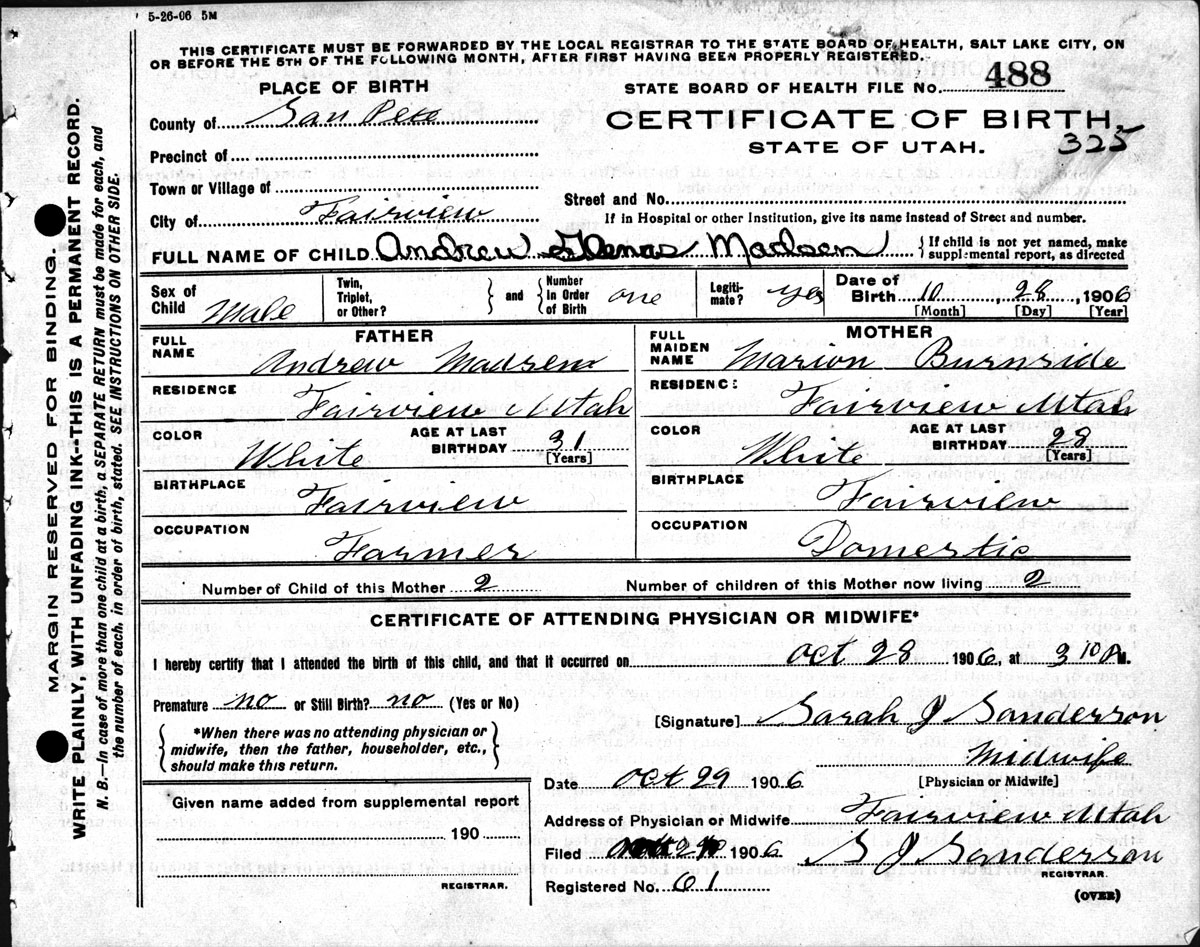 5-26-06 5M
THIS CERTIFICATE MUST BE FORWARDED BY THE LOCAL REGISTRAR TO THE STATE BOARD OF HEALTH, SALT LAKE CITY, ON
OR BEFORE THE 5TH OF THE FOLLOWING MONTH, AFTER FIRST HAVING BEEN PROPERLY REGISTERED.
PLACE OF BIRTH
STATE BOARD OF HEALTH FILE No. 488
County of San Pete
CERTIFICATE OF BIRTH.
325
Precinct of
STATE OF UTAH.
Town or Village of
Street and No.
City of Fairview
If in Hospital or other Institution, give its name instead of Street and number.
FULL NAME OF CHILD Andrew Madsen { If child is not yet named, make
supplemental report, as directed
Sex of Child Male
Twin, Triplet, or Other? } and { Number In Order of Birth one
Legitimate? yes
Date of Birth 10, 28, 1906
[Month] [Day] [Year]
FATHER
FULL NAME Andrew Madsen
RESIDENCE Fairview Utah
COLOR White AGE AT LAST BIRTHDAY 31 [Years]
BIRTHPLACE Fairview
OCCUPATION Farmer
MOTHER
FULL MAIDEN NAME Marion Burnside
RESIDENCE Fairview Utah
COLOR White AGE AT LAST BIRTHDAY 28 [Years]
BIRTHPLACE Fairview
OCCUPATION Domestic
Number of Child of this Mother 2 Number of children of this Mother now living 2
CERTIFICATE OF ATTENDING PHYSICIAN OR MIDWIFE*
I hereby certify that I attended the birth of this child, and that it occurred on Oct 28 1906, at 3 10 P.M.
Premature no or Still Birth? no (Yes or No)
[Signature] Sarah J Sanderson
{ *When there was no attending physician or
midwife, then the father, householder, etc.,
should make this return. }
Midwife
[Physician or Midwife]
Date Oct 29 1906
Given name added from supplemental report
190
REGISTRAR.
Address of Physician or Midwife Fairview Utah
Filed 1906 S J Sanderson
REGISTRAR.
Registered No. 61
(OVER)
MARGIN RESERVED FOR BINDING.
WRITE PLAINLY, WITH UNFADING INK--THIS IS A PERMANENT RECORD.
N. B.—In case of more than one child at a birth, a SEPARATE RETURN must be made for each, and
the number of each, in order of birth, stated. SEE INSTRUCTIONS ON OTHER SIDE.